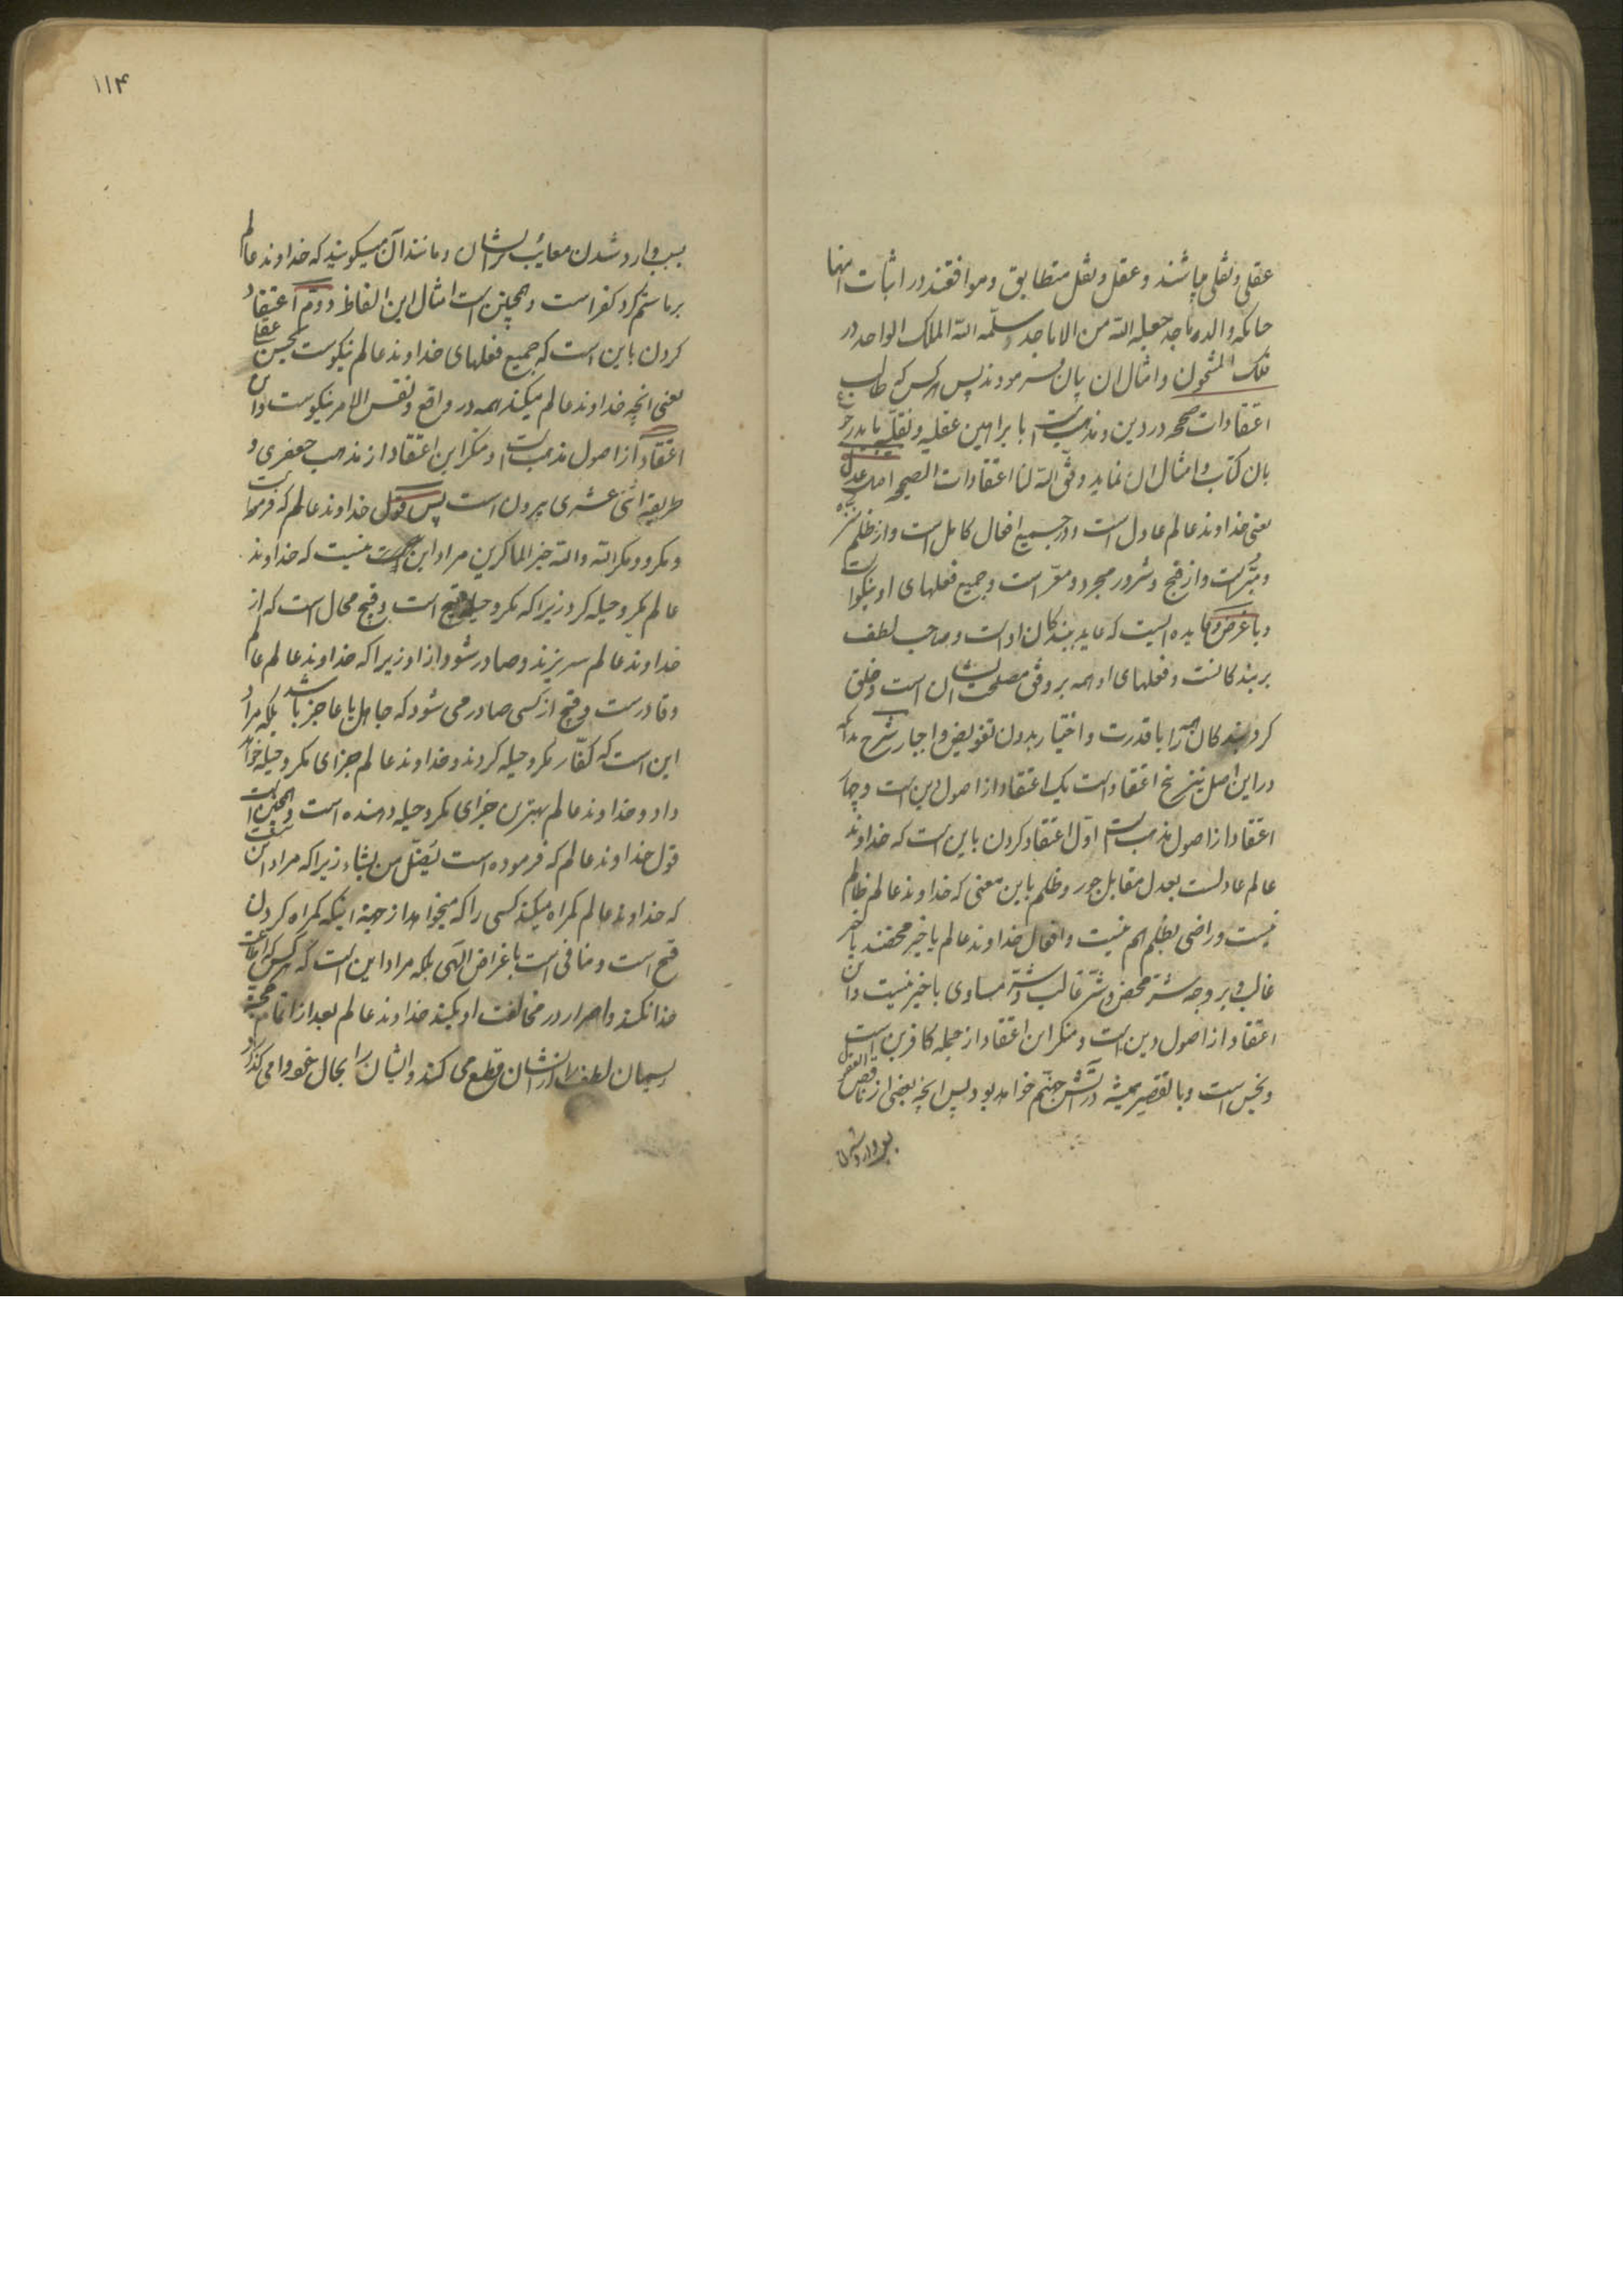 عقلی و نقلی میباشند و عقل و نقل متطابق و موافقند در اثبات انها
چنانکه والد ماجد جعله الله من الاماجد و سلّمه الله الملک الواحد در
فلک المشحون و امثال ان بیان فرمودند پس هر کس که طالب
اعتقادات صحیحه در دین و مذهب است با براهین عقلیه و نقلیّه باید رجوع
بان کتاب و امثال ان نماید وفّق الله لنا اعتقادات الصحیحه اصل عدل
یعنی خداوند عالم عادل است و در جمیع افعال کامل است و از ظلم منزه
و مبرّاست و از قبح و شرور مجرد و معرّاست و جمیع فعلهای او نیکوا ست
و با غرض و فایده ایست که عاید بندگان او است و صاحب لطف
بر بندگانست و فعلهای او همه بر وفق مصلحت ایشان است و خلق
کرد بندگان را با قدرت و اختیار بدون تفویض و اجبار شرح بدانکه
در این اصل نیز پنج اعتقاد است یک اعتقاد از اصول دین است و چهار
اعتقاد از اصول مذهب است اوّل اعتقاد کردن باین است که خداوند
عالم عادلست بعدل مقابل جور و ظلم باین معنی که خداوند عالم ظالم
نیست و راضی بظلم هم نیست و افعال خداوند عالم یا خیر محضند یا خیر
غالب و بر وجه شرّ محض و شرّ غالب و شرّ مساوی با خیر نیست و این
اعتقاد از اصول دین است و منکر این اعتقاد از جمله کافرین است
و نجس است و با تقصیر همیشه در آتش جهنّم خواهد بود پس انچه بعضی از ناقص العقل
بسبب وارد شدن
۱۱۴
بسبب وارد شدن مصائب بر ایشان و مانند آن میگویند که خداوند عالم
بر ما ستم کرد کفر است و همچنین است امثال این الفاظ دوّم اعتقاد
کردن باین است که جمیع فعلهای خداوند عالم نیکوست بحسن عقلی
یعنی انچه خداوند عالم میکند همه در واقع و نفس الامر نیکوست و این
اعتقاد از اصول مذهب است و منکر این اعتقاد از مذهب جعفری و
طریقه اثنی عشری بیرون است پس قول خداوند عالم که فرموده است
و مکروا و مکر الله و الله خیر الماکرین مراد این نیست که خداوند
عالم مکر و حیله کرد زیرا که مکر و حیله قبیح است و قبیح محال است که از
خداوند عالم سر بزند و صادر شود از او زیرا که خداوند عالم عالم
و قادر ست و قبیح از کسی صادر می شود که جاهل یا عاجز باشد بلکه مراد
این است که کفّار مکر و حیله کردند و خداوند عالم جزای مکر و حیله خواهد
داد و خداوند عالم بهترین جزای مکر و حیله دهنده است و همچنین است
قول خداوند عالم که فرموده است یضلّ من یشاء زیرا که مراد این نیست
که خداوند عالم گمراه میکند کسی را که میخواهد از جهة اینکه گمراه کردن
قبیح است و منافی است با غراض الهی بلکه مراد این است که هر کس که اطاعت
خدا نکند و اصرار در مخالفت او بکند خداوند عالم بعد از اتمام حجّة
ریسمان لطف را از ایشان قطع می کند و ایشان را بحال خود وا می گذارد